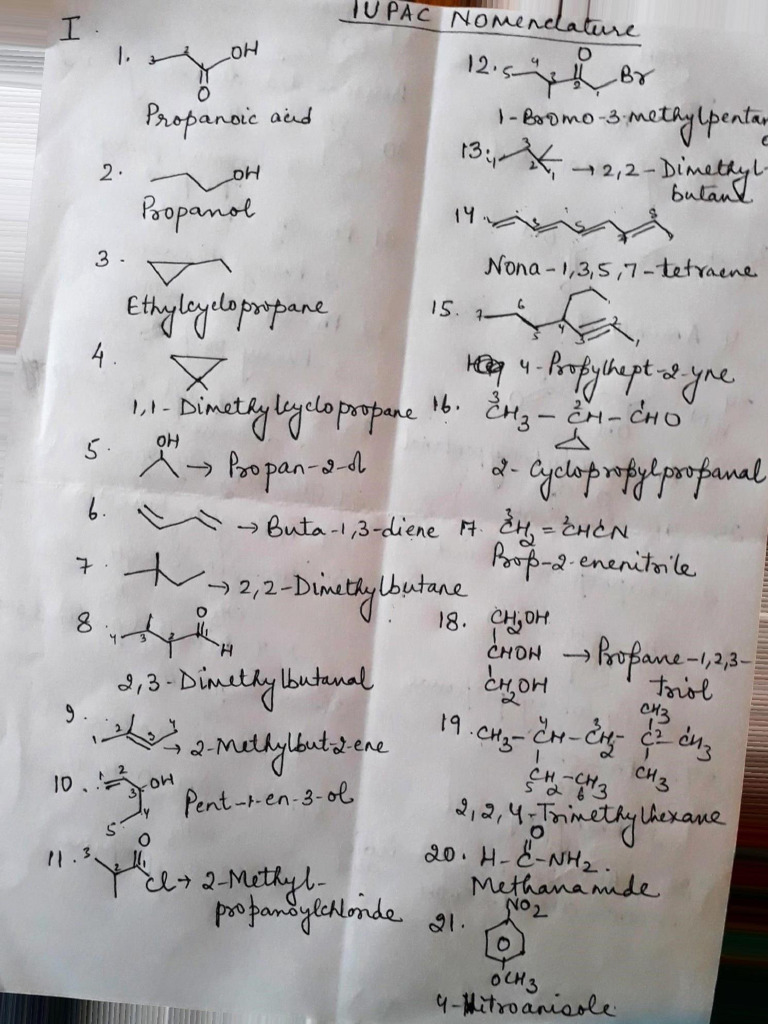 IUPAC Nomenclature
I.
1. 3 2 OH
O
Propanoic acid
2. OH
Propanol
3.
Ethylcyclopropane
4.
1,1-Dimethylcyclopropane
5. OH
→ Propan-2-ol
6. → Buta-1,3-diene
7. → 2,2-Dimethylbutane
8. 4 3 2 1 O H
2,3-Dimethylbutanal
9. 1 2 3 4
→ 2-Methylbut-2-ene
10. 1 2 3 OH
4 5 Pent-1-en-3-ol
11. 3 2 1 O
Cl → 2-Methyl-
propanoylchloride
12. 5 4 3 2 1 O Br
1-Bromo-3-methylpentan
13. 4 3 2 1 → 2,2-Dimethyl-
butane
14 1 3 5 7 8
Nona-1,3,5,7-tetraene
15. 7 6 5 4 3 2 1
4-Propylhept-2-yne
16. 3 2 1
CH3 - CH - CHO
2-Cyclopropylpropanal
17. 3 2 1
CH2 = CHCN
Prop-2-enenitrile
18. CH2OH
CHOH → Propane-1,2,3-
CH2OH triol
19. CH3 - 4 CH - 3 CH2 - 2 C - 1 CH3
CH3
5 CH2 - 6 CH3 CH3
2,2,4-Trimethylhexane
20. O
H-C-NH2.
Methanamide
21. NO2
OCH3
4-Nitroanisole